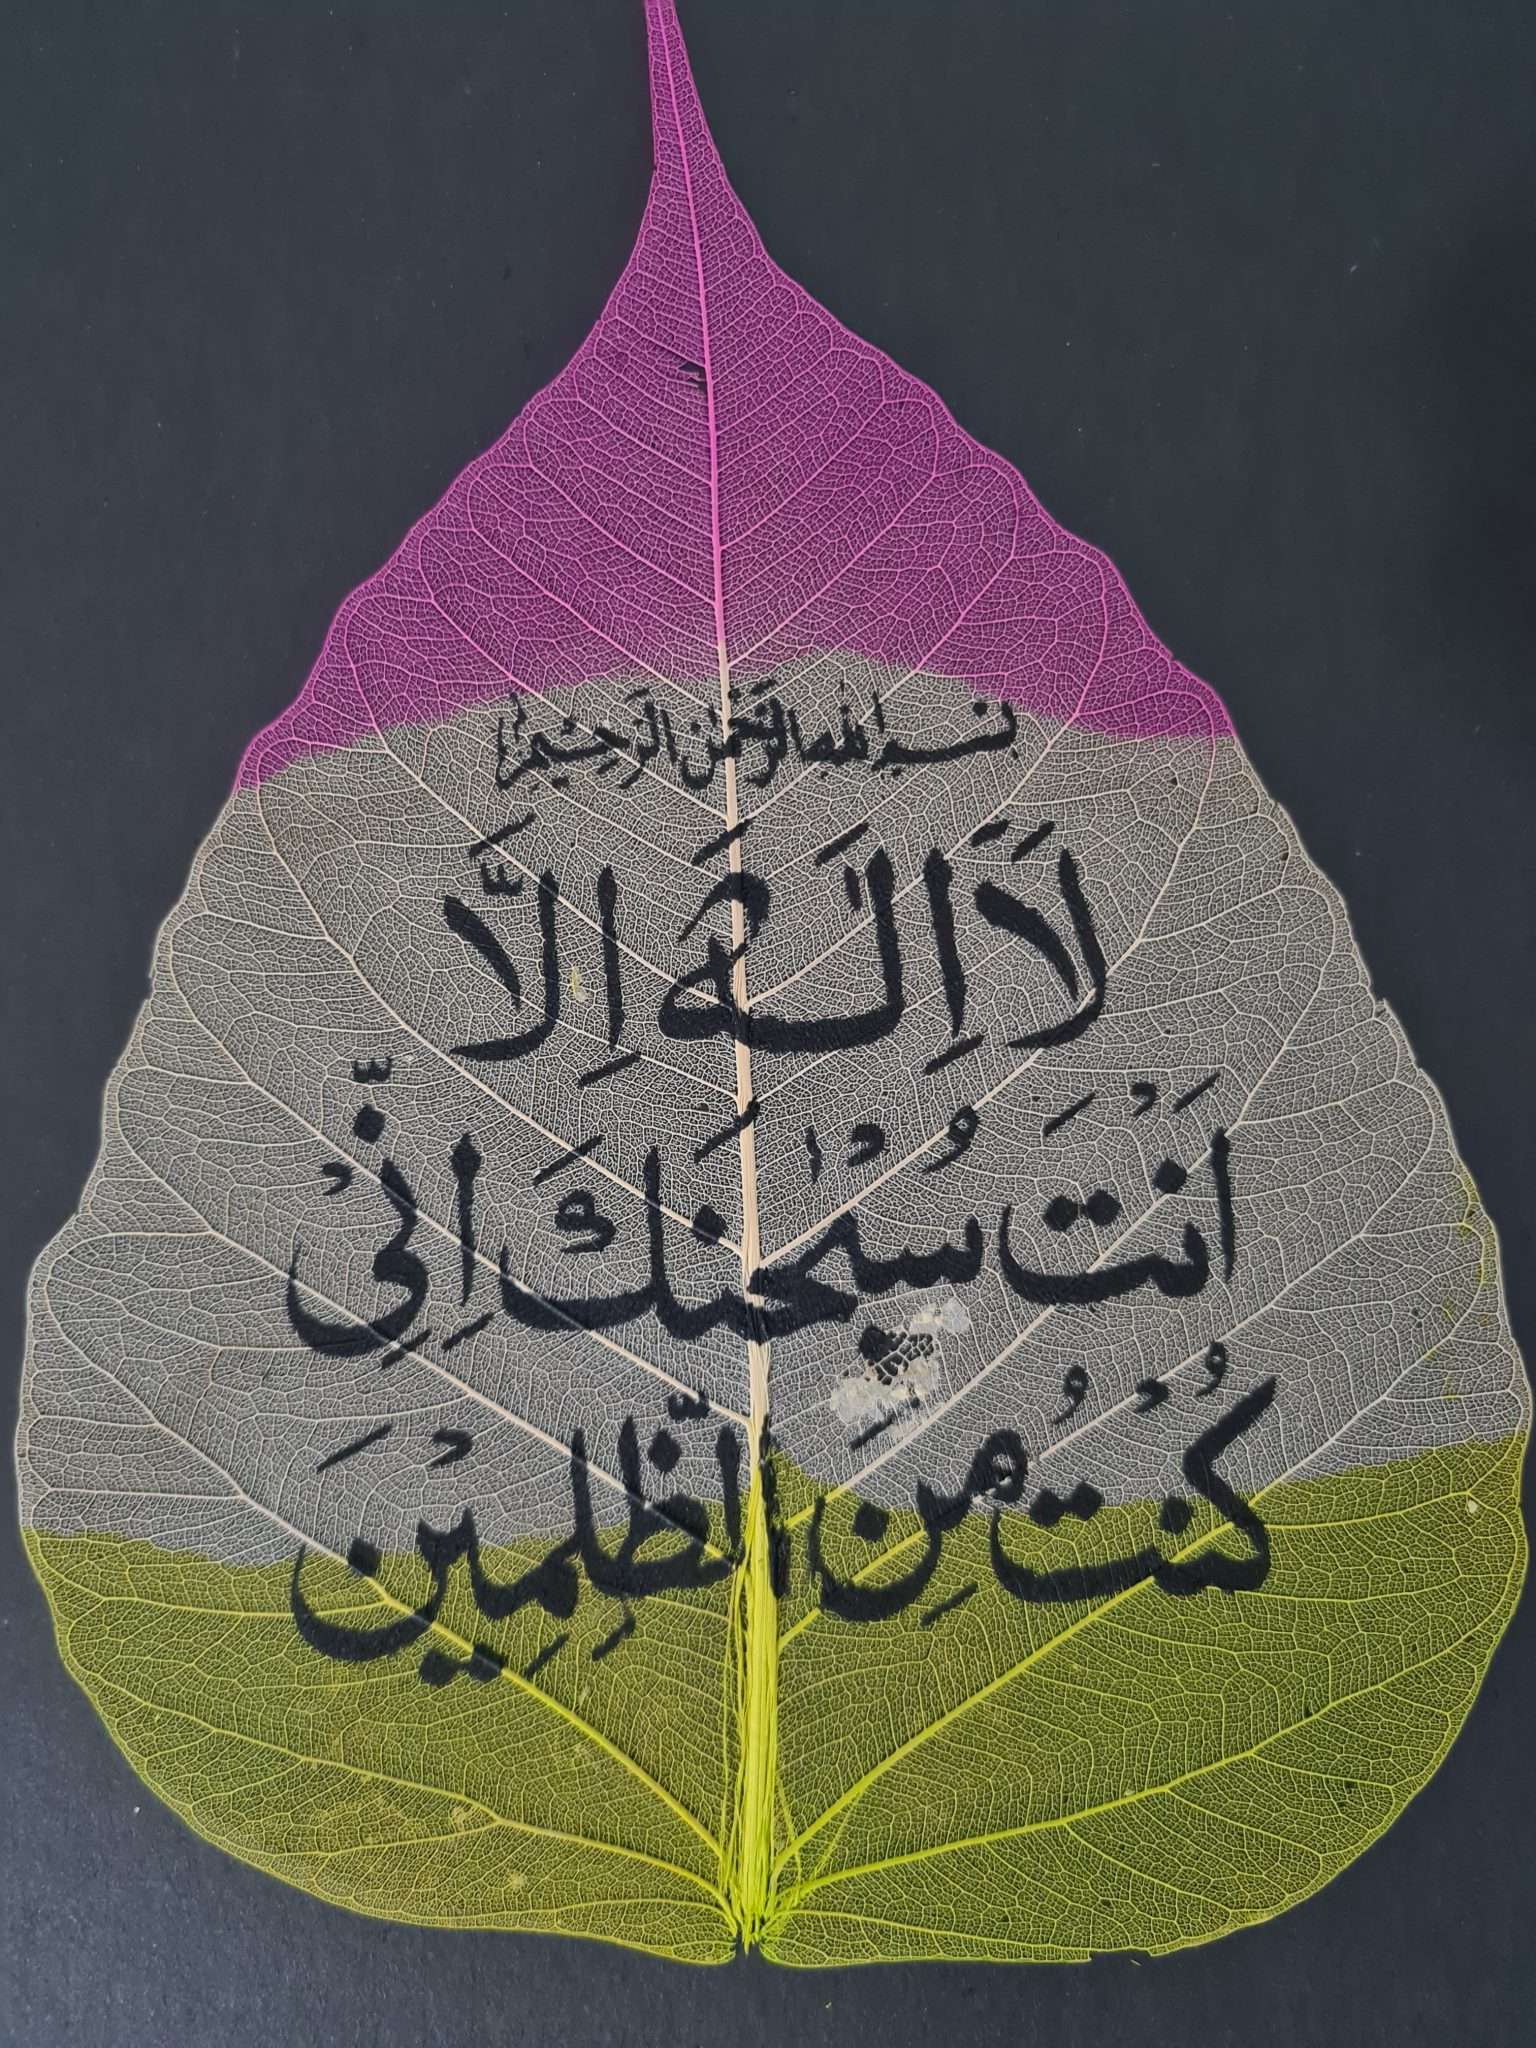 بسم الله الرحمن الرحيم
لَا اِلٰهَ اِلَّا
اَنْتَ سُبْحٰنَكَ اِنِّيْ
كُنْتُ مِنَ الظّٰلِمِيْنَ